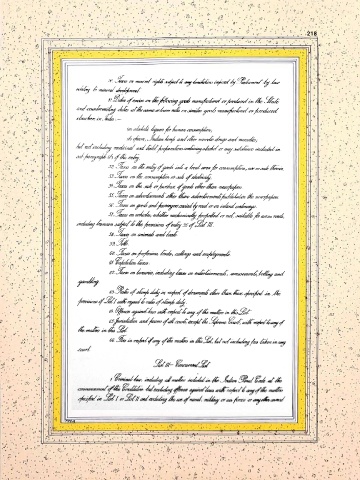 218
50. Taxes on mineral rights subject to any limitations imposed by Parliament by law
relating to mineral development.
51. Duties of excise on the following goods manufactured or produced in the State
and countervailing duties at the same or lower rates on similar goods manufactured or produced
elsewhere in India:—
(a) alcoholic liquors for human consumption;
(b) opium, Indian hemp and other narcotic drugs and narcotics;
but not including medicinal and toilet preparations containing alcohol or any substance included in
sub-paragraph (b) of this entry.
52. Taxes on the entry of goods into a local area for consumption, use or sale therein.
53. Taxes on the consumption or sale of electricity.
54. Taxes on the sale or purchase of goods other than newspapers.
55. Taxes on advertisements other than advertisements published in the newspapers.
56. Taxes on goods and passengers carried by road or on inland waterways.
57. Taxes on vehicles, whether mechanically propelled or not, suitable for use on roads,
including tramcars subject to the provisions of entry 35 of List III.
58. Taxes on animals and boats.
59. Tolls.
60. Taxes on professions, trades, callings and employments.
61. Capitation taxes.
62. Taxes on luxuries, including taxes on entertainments, amusements, betting and
gambling.
63. Rates of stamp duty in respect of documents other than those specified in the
provisions of List I with regard to rates of stamp duty.
64. Offences against laws with respect to any of the matters in this List.
65. Jurisdiction and powers of all courts, except the Supreme Court, with respect to any of
the matters in this List.
66. Fees in respect of any of the matters in this List, but not including fees taken in any
court.
List III—Concurrent List
1. Criminal law, including all matters included in the Indian Penal Code at the
commencement of this Constitution but excluding offences against laws with respect to any of the matters
specified in List I or List II and excluding the use of naval, military or air forces or any other armed